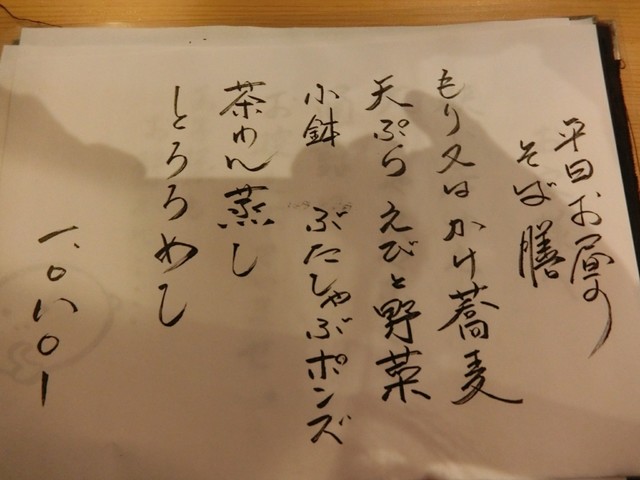 平日お昼の
そば膳
もり又はかけ蕎麦
天ぷら えびと野菜
小鉢 ぶたしゃぶポンズ
茶わん蒸し
とろろめし